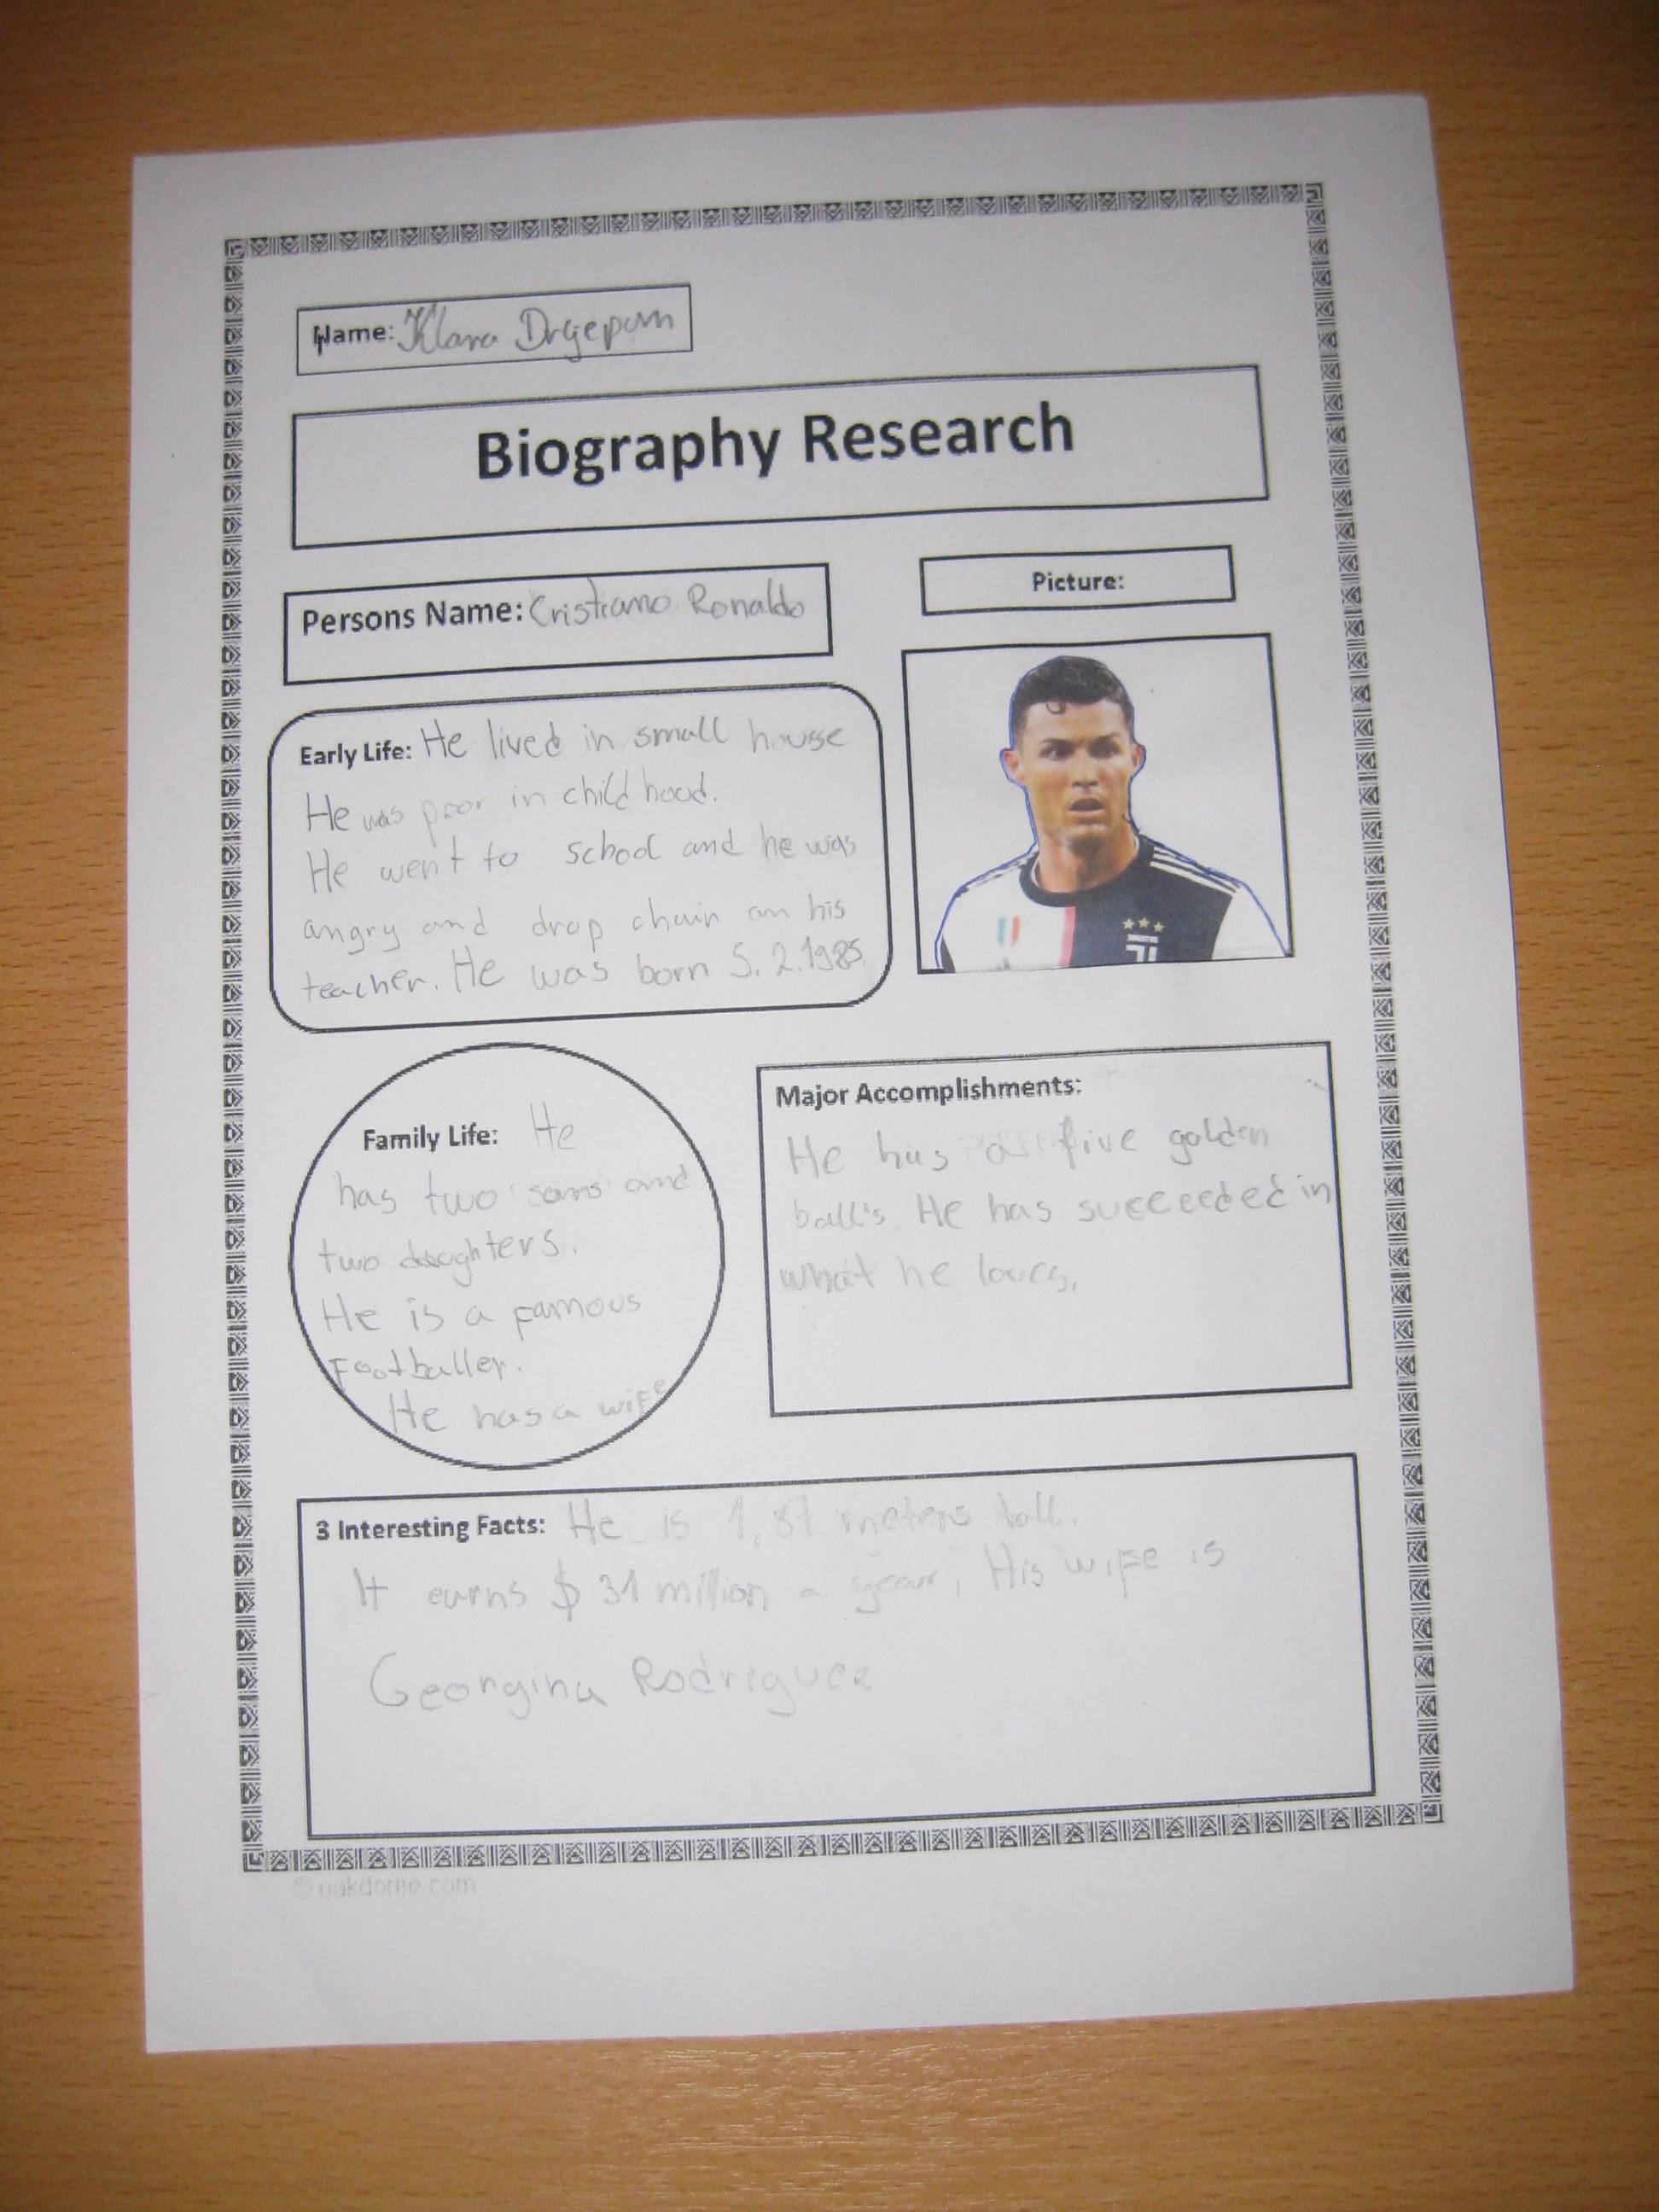 Name: Klara
Biography Research
Persons Name: Cristiano Ronaldo
Picture:
Early Life: He lived in small housse
He was poor in childhood.
He went to school and he was
angry and drop chair on his
teacher. He was born 5. 2. 1985.
JUVENTUS
Family Life: He
has two sons and
two daughters.
He is a famous
footballer.
He has a wife
Major Accomplishments:
He has a five golden
ball's. He has succeeded in
what he loves.
3 Interesting Facts: He is 1,87 meters tall.
It earns $ 31 million a year, His wife is
Georgina Rodriguez
© oakdome.com